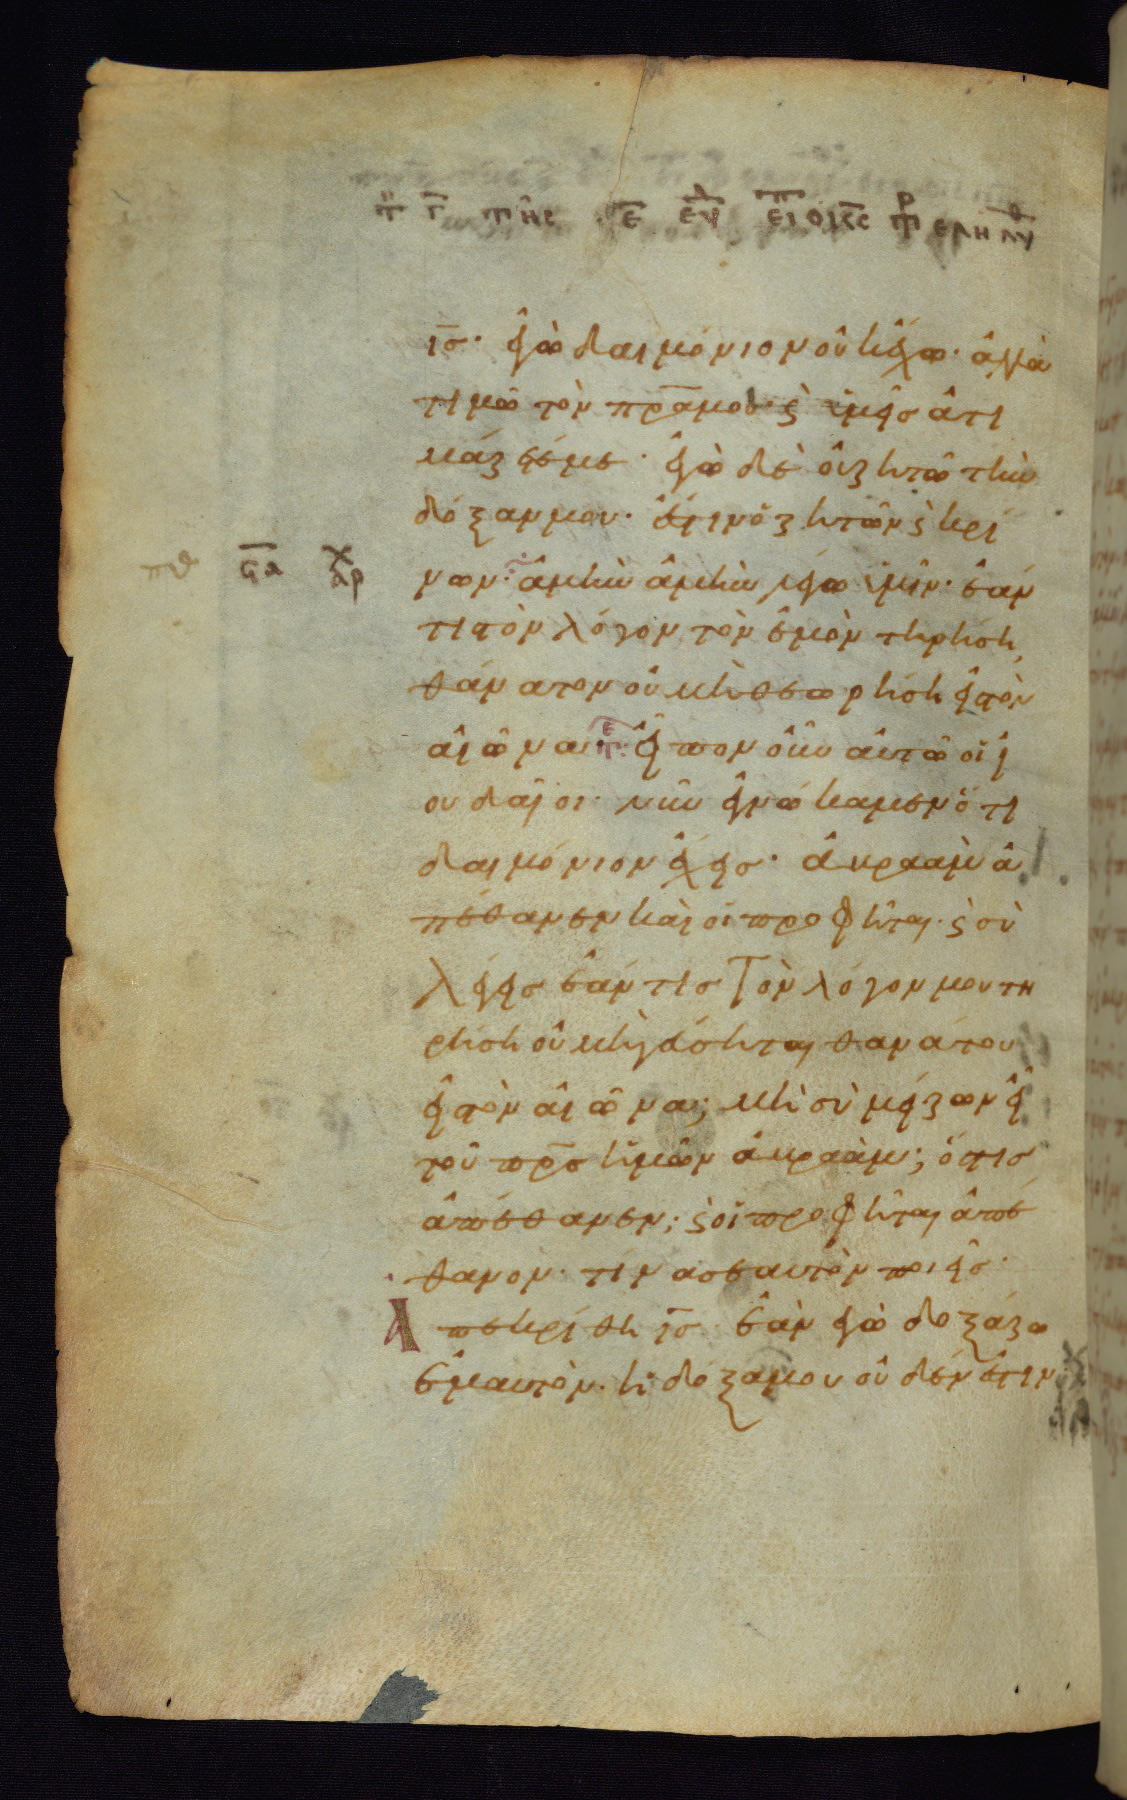 τῆς ε
ις· ἐγὼ δαιμόνιον οὐκ ἔχω· ἀλλὰ
τιμῶ τὸν πρα μου· ϗ ὑμεῖς ἀτι
μάζετέ με· ἐγὼ δὲ οὐ ζητῶ τὴν
δόξαν μου· ἔστιν ὁ ζητῶν ϗ κρί
νων· ἀμὴν ἀμὴν λέγω ὑμῖν· ἐάν
αρχ
τις τὸν λόγον τὸν ἐμὸν τηρήση
θάνατον οὐ μὴ θεωρήση εἰς τὸν
αἰῶνα· εἶπον οὖν αὐτῶ οἱ ἰ
ουδαῖοι· νῦν ἐγνώκαμεν ὅτι
δαιμόνιον ἔχεις· ἀβραὰμ ἀ
πέθανεν καὶ οἱ προφῆται· ϗ σὺ
λέγεις ἐάν τις τὸν λόγον μου τη
ρήση οὐ μὴ γεύσηται θανάτου
εἰς τὸν αἰῶνα; μὴ σὺ μείζων εἶ
τοῦ πρς ἡμῶν ἀβραάμ; ὅστις
ἀπέθανεν; ϗ οἱ προφῆται ἀπέ
θανον· τίνα σεαυτὸν ποιεῖς·
Ἀπεκρίθη ις· ἐὰν ἐγὼ δοξάζω
ἐμαυτὸν· ἡ δόξα μου οὐδέν ἐστιν·